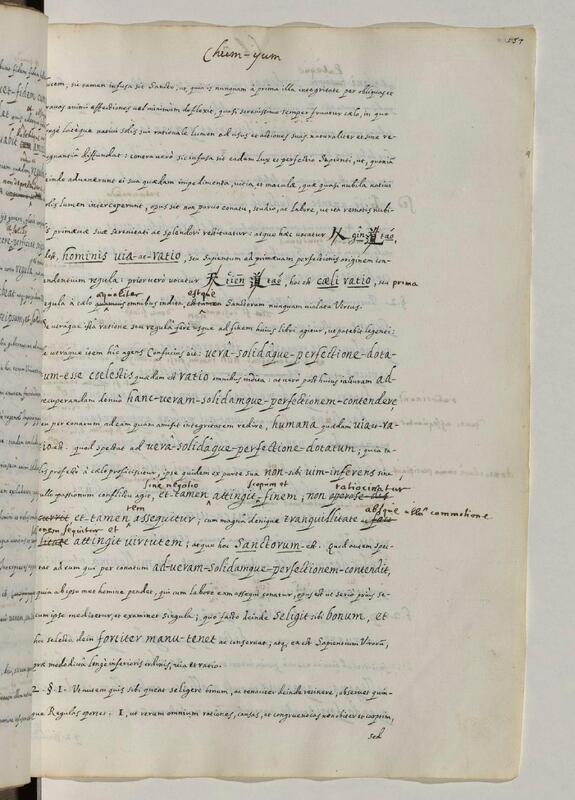 157
Chūm-yum
lucem, sic tamen infusa sit Sancto, ut, quia is nunquam à prima illa integritate per obliquas et
pravas animi affectiones vel minimum deflexit, quasi serenissimo semper fruatur caelo, in quo
nativi solis sui rationale lumen ad usus et actiones suas naturaliter et sine re-
pugnantia diffundat: contra verò sic infusa sit eadem lux et perfectio Sapienti, ut, quoniam
deinde advenerunt ei suae quaedam impedimenta, vitia, et maculae, quae quasi nubila nativi
solis lumen interceperunt, opus sit non parvo conatu, studio, ac labore, ut ita remotis nubi-
primaevae suae serenitati ac splendori restituatur: atque haec vocatur 人 gîn 道 táo,
hominis via-ac-ratio, seu Sapientum ad primaevam perfectionis originem con-
tendentium regula: prior verò vocatur 天 tiēn 道 táo, hoc est caeli ratio, seu prima
aequaliter estque
regula à caelo omnibus indita, Sanctorum nunquam violata Virtus.
De utraque istâ ratione seu regulâ ferè usque ad finem huius libri agitur, ut patebit legenti:
de utraque item hîc agens Confucius ait: verâ-solidâque-perfectione-dota-
tum-esse coelestis quaedam est ratio omnibus indita; at verò post huius iacturam ad-
recuperandam denuò hanc-veram-solidamque-perfectionem-contendere
seu per conatum ad eam quam amisit integritatem redire, humana quaedam via et ra-
tio est. quod spectat ad verâ-solidâque-perfectione dotatum; quia ta-
lis profectò à caelo proficiscitur, ipse quidem ex parte sua non-sibi vim-inferens sine
sine negotio scopum et ratiocinatur
ullo passionum conflictu agit, et-tamen attingit finem; non operose
rem absque commotione
et-tamen assequitur; cum magna denique tranquillitate ac
attingit virtutem; atque hoc Sanctorum-est. Quod autem spec-
tat ad eum qui per conatum ad-veram-solidamque-perfectionem-contendit,
quia ab ipso met homine pendet, qui cum labore eam assequi conatur, opus est ut seriò priùs se-
cum ipse meditetur, et examinet singula; quo facto deinde seligit sibi bonum, et
hoc selecto, dein fortiter manu-tenet ac conservat; atque ea est Sapientium Virorum,
prae modò dictis longè inferioris ordinis, via et ratio.
2. §. 1. Ut autem quis sibi queat seligere bonum, ac tenaciter deinde retinere, observet quin-
que Regulas oportet. 1, ut rerum omnium rationes, causas, et congruentias non obiter et curptim,
sed